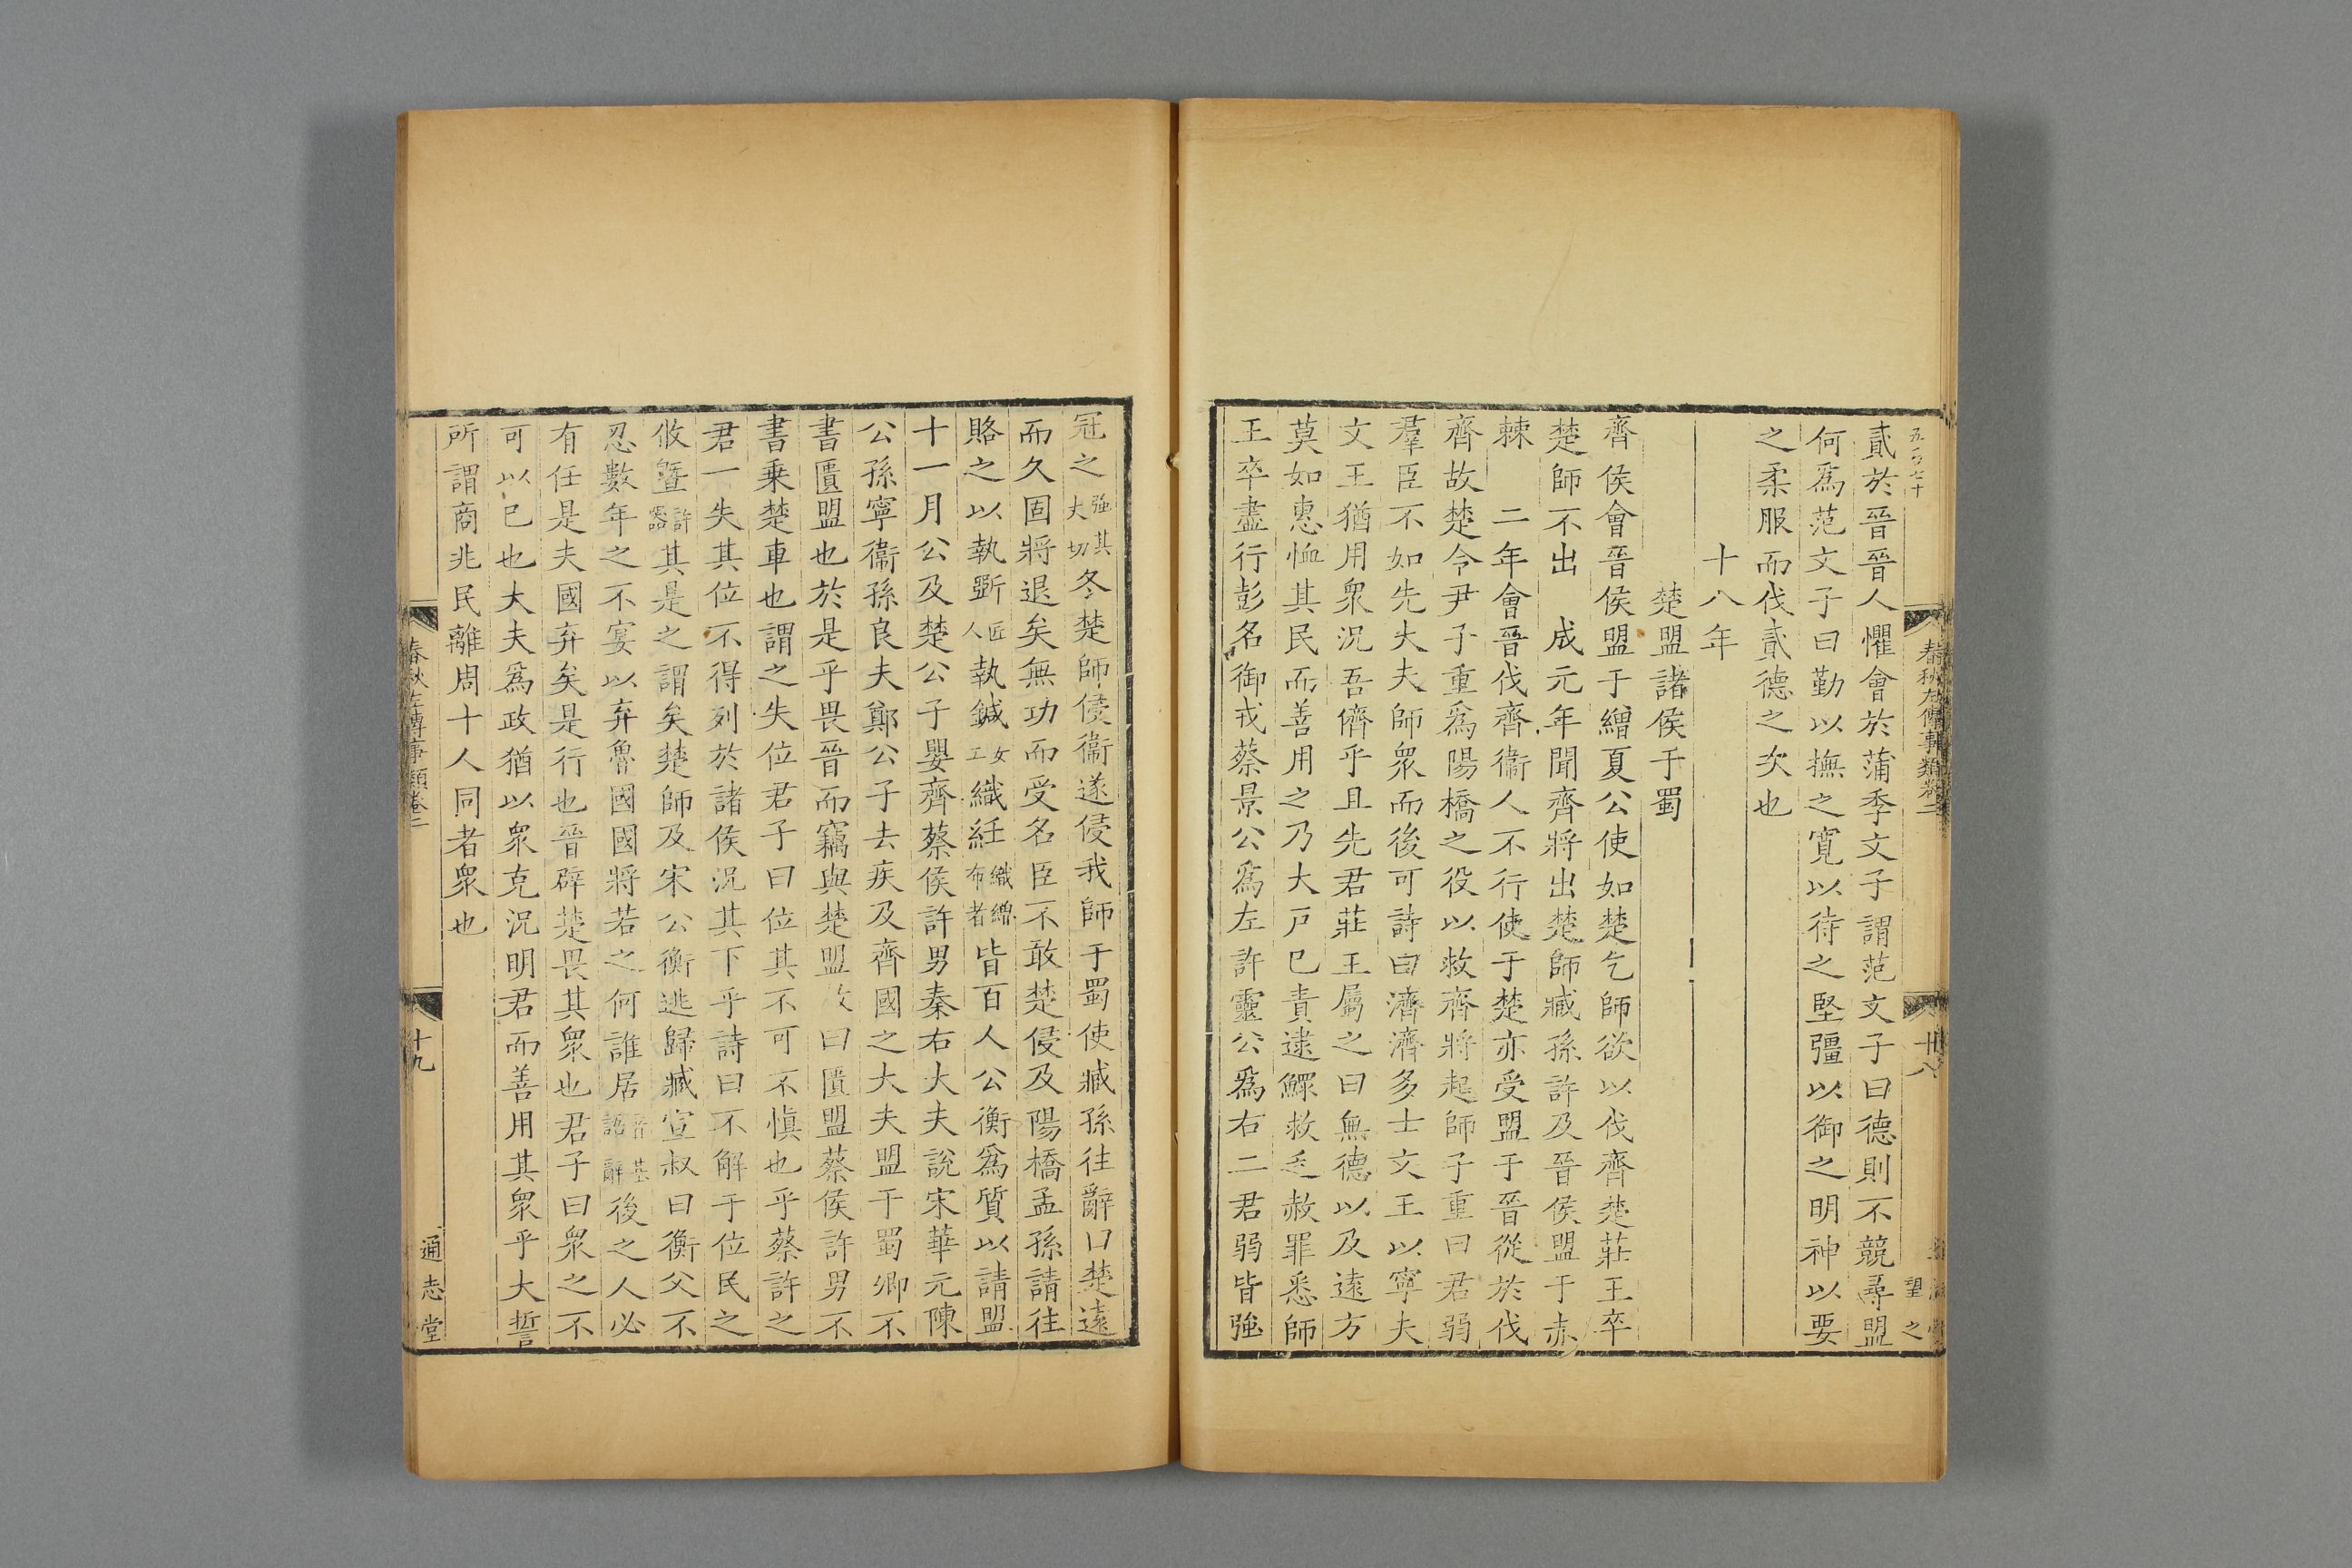 貳於晉晉人懼會於蒲季文子謂范文子曰德則不競尋盟
何爲范文子曰勤以撫之寬以待之堅彊以御之明神以要
之柔服而伐貳德之次也
十八年
楚盟諸侯于蜀
齊侯會晉侯盟于繒夏公使如楚乞師欲以伐齊楚莊王卒
楚師不出 成元年聞齊將出楚師臧孫許及晉侯盟于赤
棘 二年會晉伐齊衞人不行使于楚亦受盟于晉從於伐
齊故楚令尹子重爲陽橋之役以救齊將起師子重曰君弱
羣臣不如先大夫師衆而後可詩曰濟濟多士文王以寧夫
文王猶用衆況吾儕乎且先君莊王屬之曰無德以及遠方
莫如惠恤其民而善用之乃大戸已責逮鰥救乏赦罪悉師
王卒盡行彭名御戎蔡景公爲左許靈公爲右二君弱皆強
春秋左傳事類卷二
十八
冠之強其大切冬楚師侵衞遂侵我師于蜀使臧孫往辭曰楚遠
而久固將退矣無功而受名臣不敢楚侵及陽橋孟孫請往
賂之以執斲匠人執鍼女工織紝織繒布者皆百人公衡爲質以請盟
十一月公及楚公子嬰齊蔡侯許男秦右大夫說宋華元陳
公孫寧衞孫良夫鄭公子去疾及齊國之大夫盟于蜀卿不
書匱盟也於是乎畏晉而竊與楚盟故曰匱盟蔡侯許男不
書乗楚車也謂之失位君子曰位其不可不慎也乎蔡許之
君一失其位不得列於諸侯況其下乎詩曰不解于位民之
攸曁許器其是之謂矣楚師及宋公衡逃歸臧宣叔曰衡父不
忍數年之不宴以弃魯國國將若之何誰居音基語辭後之人必
有任是夫國弃矣是行也晉辟楚畏其衆也君子曰衆之不
可以已也大夫爲政猶以衆克況明君而善用其衆乎大誓
所謂商兆民離周十人同者衆也
春秋左傳事類卷二
十九
通志堂